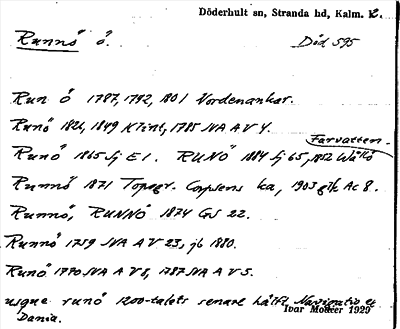 Döderhult sn, Stranda hd, Kalm. l.
Runnö ö. Död 595
Run ö 1787, 1792, 1801 Nordenankar.
Runö 1826, 1849 Klint, 1785 SVA A V 4.
Farvatten.
Runö 1865 Sj E 1. RUNÖ 1884 Sj 65, 1852 Wåhlö
Runnö 1871 Topogr. Corpsens ka, 1903 glk Ac 8.
Runnö, RUNNÖ 1874 GS 22.
Runnö 1759 SVA A V 23, jb 1880.
Runö 1770 SVA A V 8, 1787 SVA A V 5.
usque runö 1200-talets senare hälft Navigatio ex
Dania. Ivar Modéer 1929